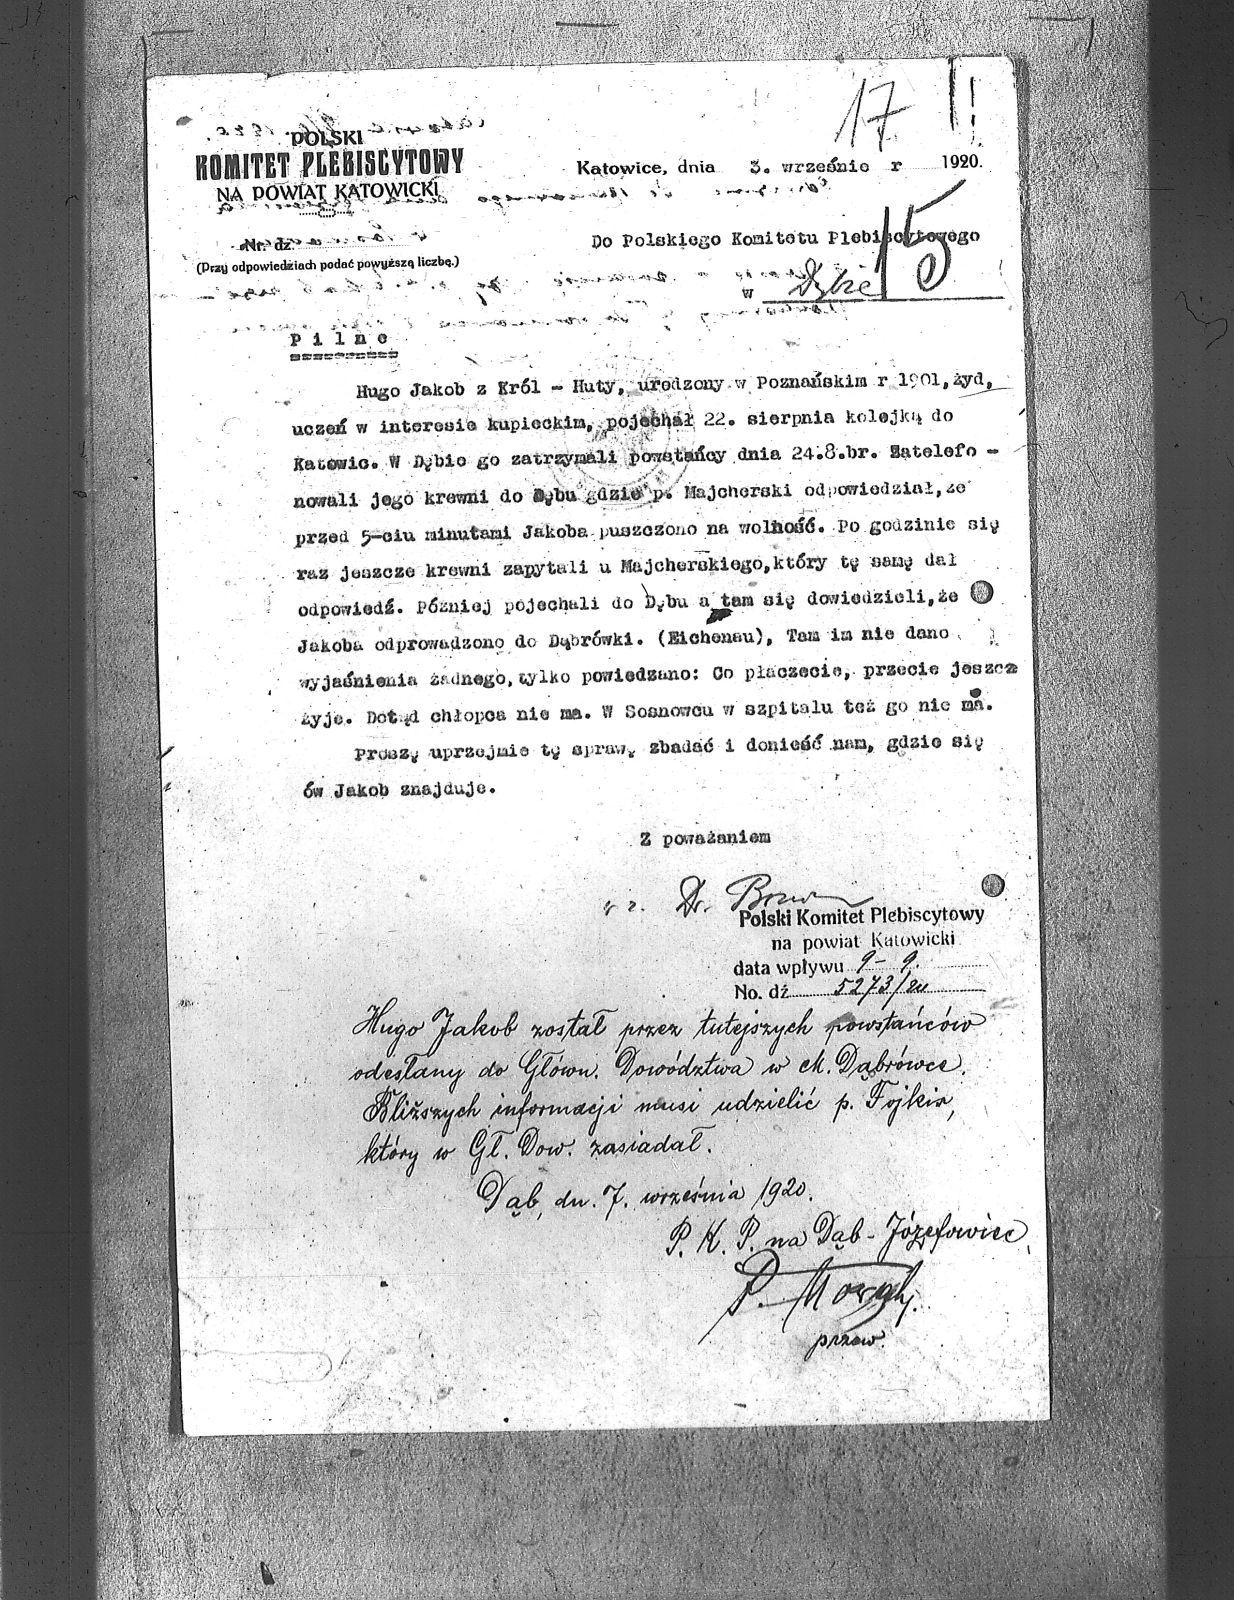 17
POLSKI
KOMITET PLEBISCYTOWY
NA POWIAT KATOWICKI
Katowice, dnia 3. wrześnie r 1920.
Nr. dz.
(Przy odpowiedziach podać powyższą liczbę.)
Do Polskiego Komitetu Plebiscytowego
w Dębie
15
Pilne
Hugo Jakob z Król - Huty, urodzony w Poznańskim r 1901, żyd,
uczeń w interesie kupieckim, pojechał 22. sierpnia kolejką do
Katowic. W Dębie go zatrzymali powstańcy dnia 24.8.br. Zatelefo -
nowali jego krewni do Dębu gdzie p. Majcherski odpowiedział, że
przed 5-ciu minutami Jakoba puszczono na wolność. Po godzinie się
raz jeszcze krewni zapytali u Majcherskiego, który tę samę dał
odpowiedź. Później pojechali do Dębu a tam się dowiedzieli, że
Jakoba odprowadzono do Dąbrówki. (Eichenau), Tam im nie dano
wyjaśnienia żadnego, tylko powiedzano: Co płaczecie, przecie jeszcze
żyje. Dotąd chłopca nie ma. W Sosnowcu w szpitalu też go nie ma.
Proszę uprzejmie tę sprawę zbadać i donieść nam, gdzie się
ów Jakob znajduje.
Z poważaniem
Dr.
Polski Komitet Plebiscytowy
na powiat Katowicki
data wpływu 9 - 9.
No. dź 5273/20
Hugo Jakob został przez tutejszych powstańców
odesłany do Główn. Dowództwa w M. Dąbrówce.
Bliższych informacji musi udzielić p. Fojkis,
który w Gł. Dow. zasiadał.
Dąb, dn. 7. września 1920.
P. K. P. na Dąb - Józefowiec
P.
przew.